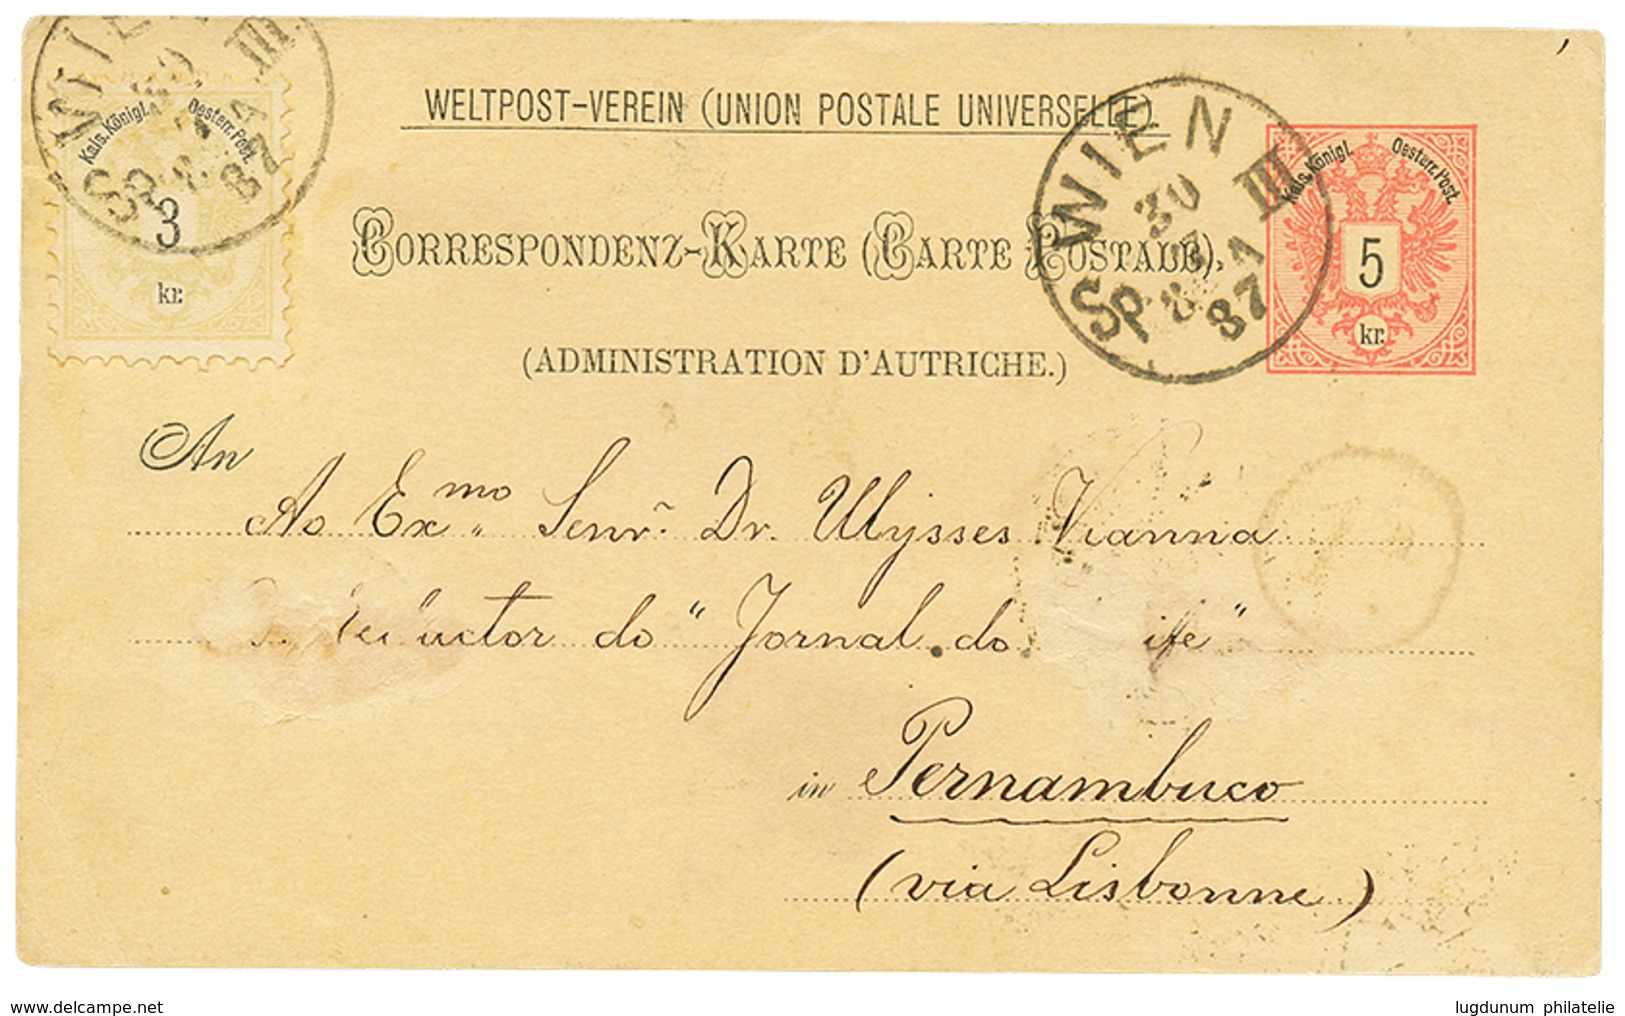 WELTPOST-VEREIN (UNION POSTALE UNIVERSELLE).
WIEN III
30
87
Kais. Königl. Oesterr. Post.
3
kr.
WIEN III
30
87
Kais. Königl. Oesterr. Post.
5
kr.
CORRESPONDENZ-KARTE (CARTE POSTALE).
(ADMINISTRATION D'AUTRICHE.)
An
Ao Exmo. Senr. Dr. Ulysses Vianna
do "Jornal do
in Pernambuco
(via Lisbonne)
www.delcampe.net
lugdunum philatelie